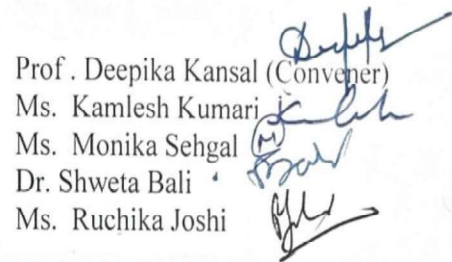 Prof . Deepika Kansal (Convener)
Ms. Kamlesh Kumari
Ms. Monika Sehgal (M)
Dr. Shweta Bali
Ms. Ruchika Joshi